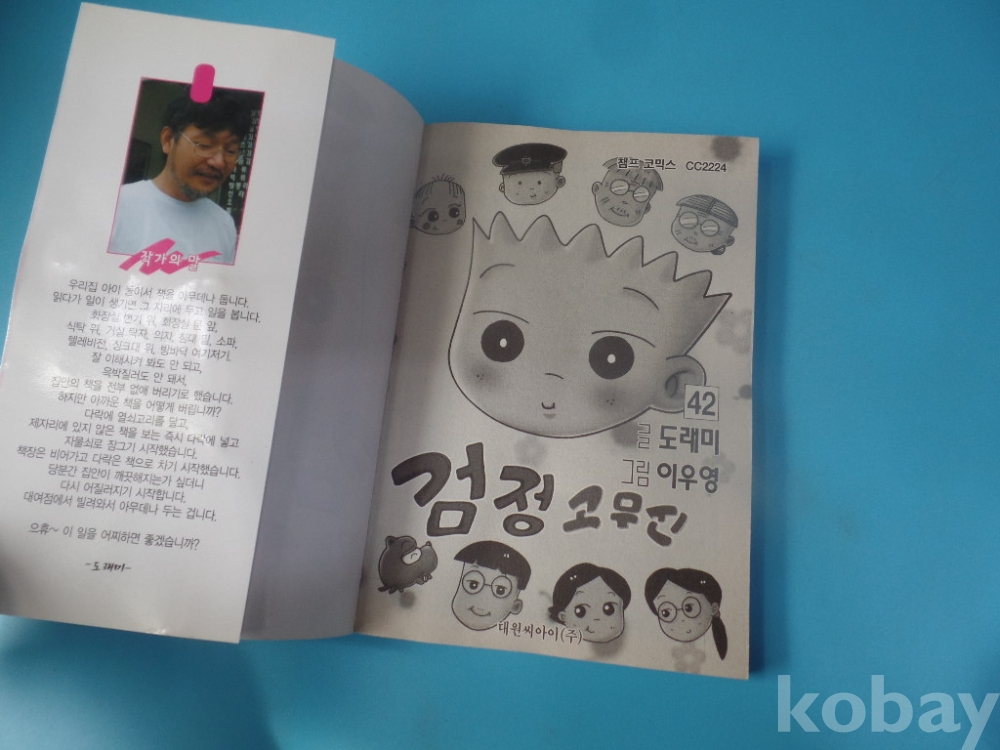 작가의 말
우리집 아이 둘이서 책을 아무데나 둡니다.
읽다가 일이 생기면 그 자리에 두고 일을 봅니다.
화장실 변기 위, 화장실 문 앞,
식탁 위, 거실 탁자, 의자, 침대 밑, 소파,
텔레비전, 싱크대 위, 방바닥 여기저기.
잘 이해시켜 봐도 안 되고,
윽박질러도 안 돼서,
집안의 책을 전부 없애 버리기로 했습니다.
하지만 아까운 책을 어떻게 버립니까?
다락에 열쇠고리를 달고,
제자리에 있지 않은 책을 보는 즉시 다락에 넣고
자물쇠로 잠그기 시작했습니다.
책장은 비어가고 다락은 책으로 차기 시작했습니다.
당분간 집안이 깨끗해지는가 싶더니
다시 어질러지기 시작합니다.
대여점에서 빌려와서 아무데나 두는 겁니다.
으휴~ 이 일을 어찌하면 좋겠습니까?
-도래미-
챔프 코믹스 CC2224
42
글 도래미
그림 이우영
검정 고무신
대원씨아이(주)
kobay